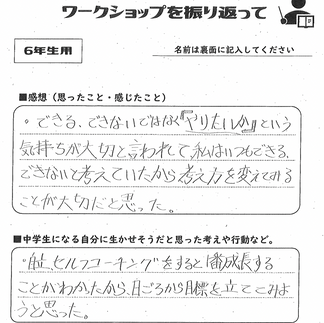 ワークショップを振り返って
6年生用
名前は裏面に記入してください
■感想（思ったこと・感じたこと）
。できる、できないではなく『やりたいか』という
気持ちが大切と言われて、私はいつもできる、
できないと考えていたから考え方を変えてみる
ことが大切だと思った。
■中学生になる自分に生かせそうだと思った考えや行動など。
セルフコーチングをすると1番成長する
ことがわかったから、日ごろから目標を立ててみよ
うと思った。